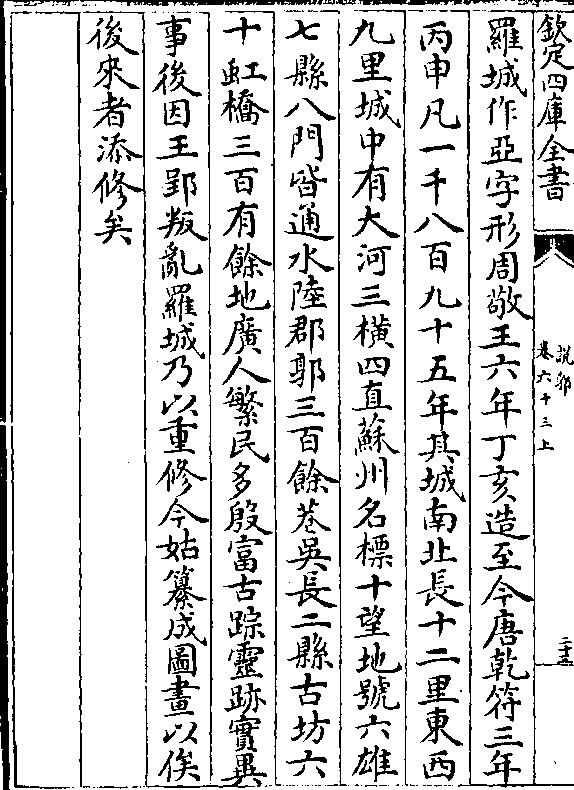 欽定四庫全書
說郛
卷六十三上
二十五
羅城作亞字形周敬王六年丁亥造至今唐乾符三年
丙申凡一千八百九十五年其城南北長十二里東西
九里城中有大河三橫四直蘇州名標十望地號六雄
七縣八門皆通水陸郡郭三百餘巷吳長二縣古坊六
十虹橋三百有餘地廣人繁民多殷富古踪靈跡實異
事後因王郢叛亂羅城乃以重修今姑纂成圖畫以俟
後來者添修矣